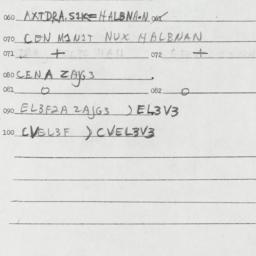 060 AXTDRA.S1K=HALBNAN
070 CEN M1N1T NUX HALBNAN
071 + 072 +
080 CENA ZAJG3 .
081 O 082 O
090 EL3F2A ZAJG3 ) EL3V3
100 CVEL3F ) CVEL3V3